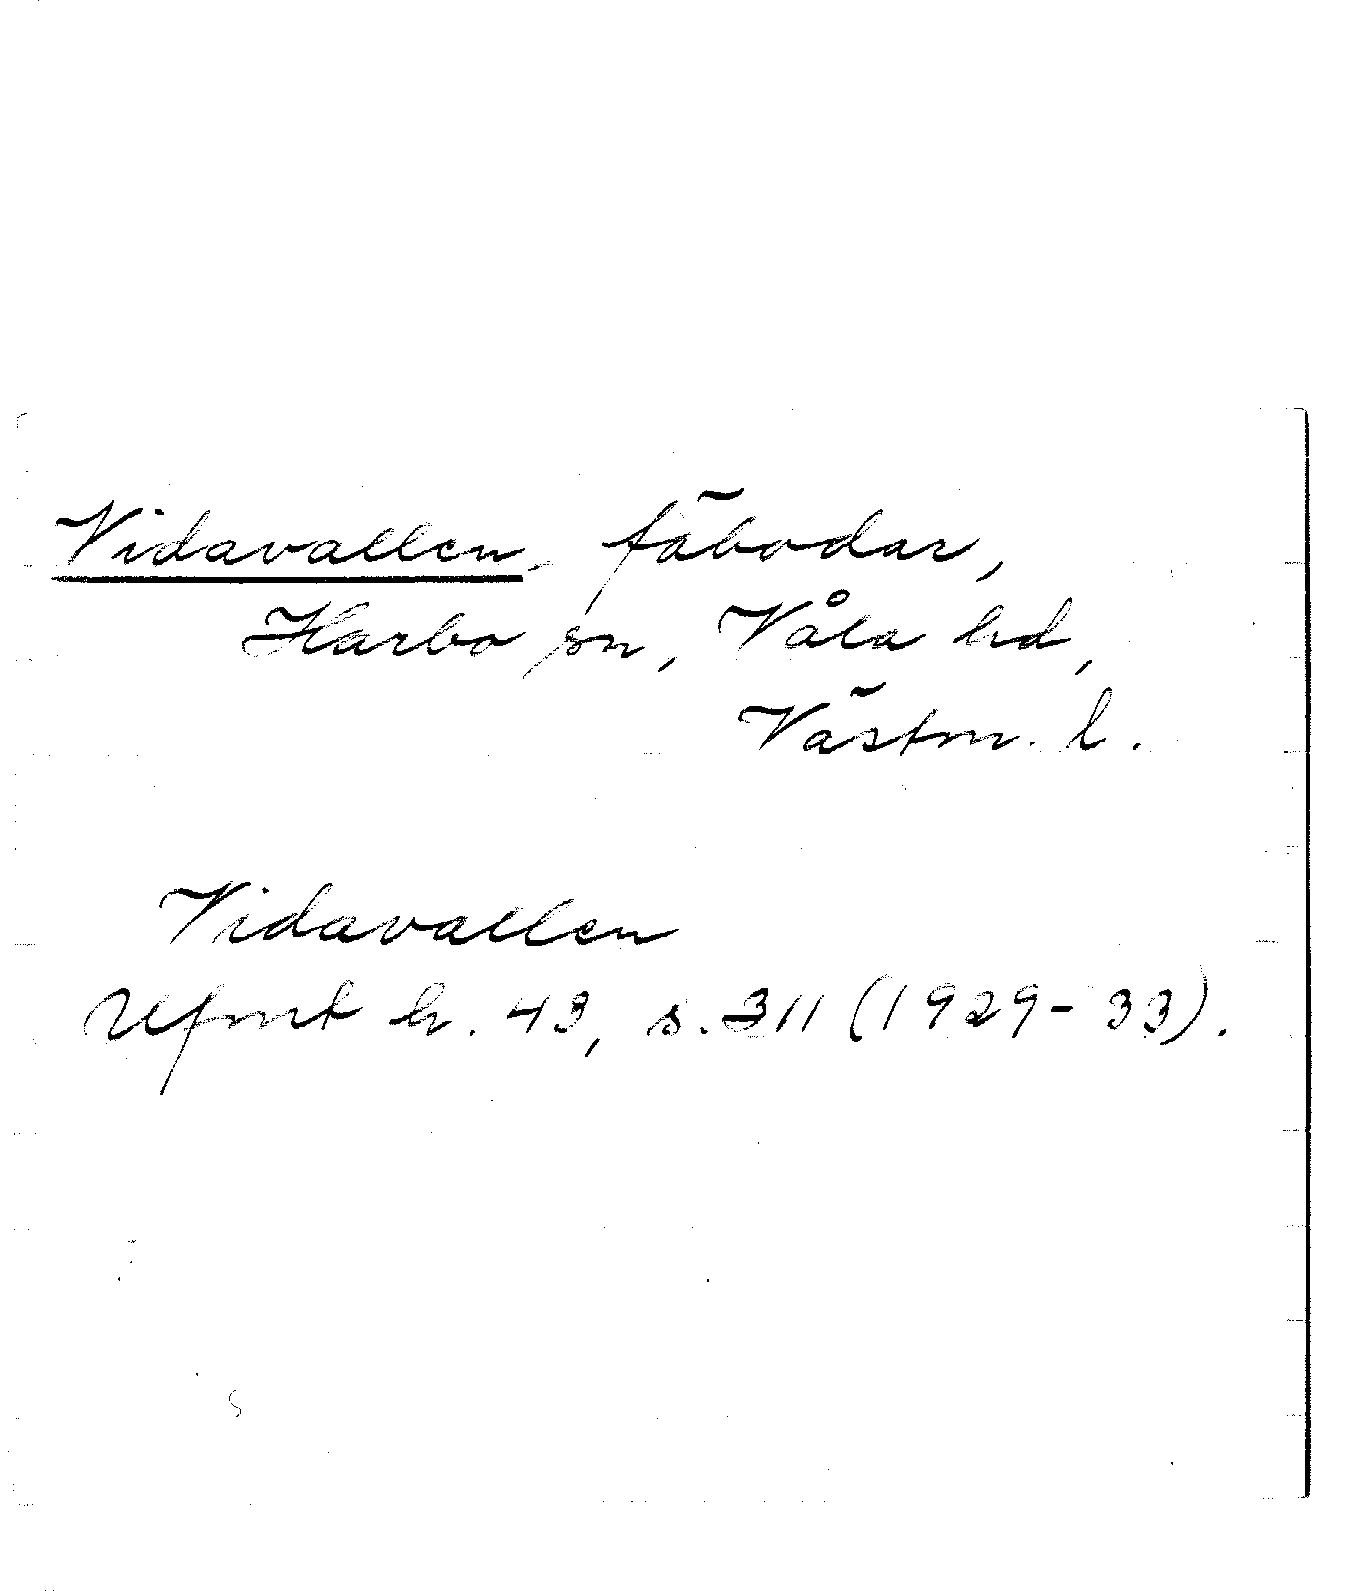 Vidavallen, fäbodar,
Harbo sn, Våla hd,
Västm. l.
Vidavallen
Ufmt h. 43, s. 311 (1929-33).